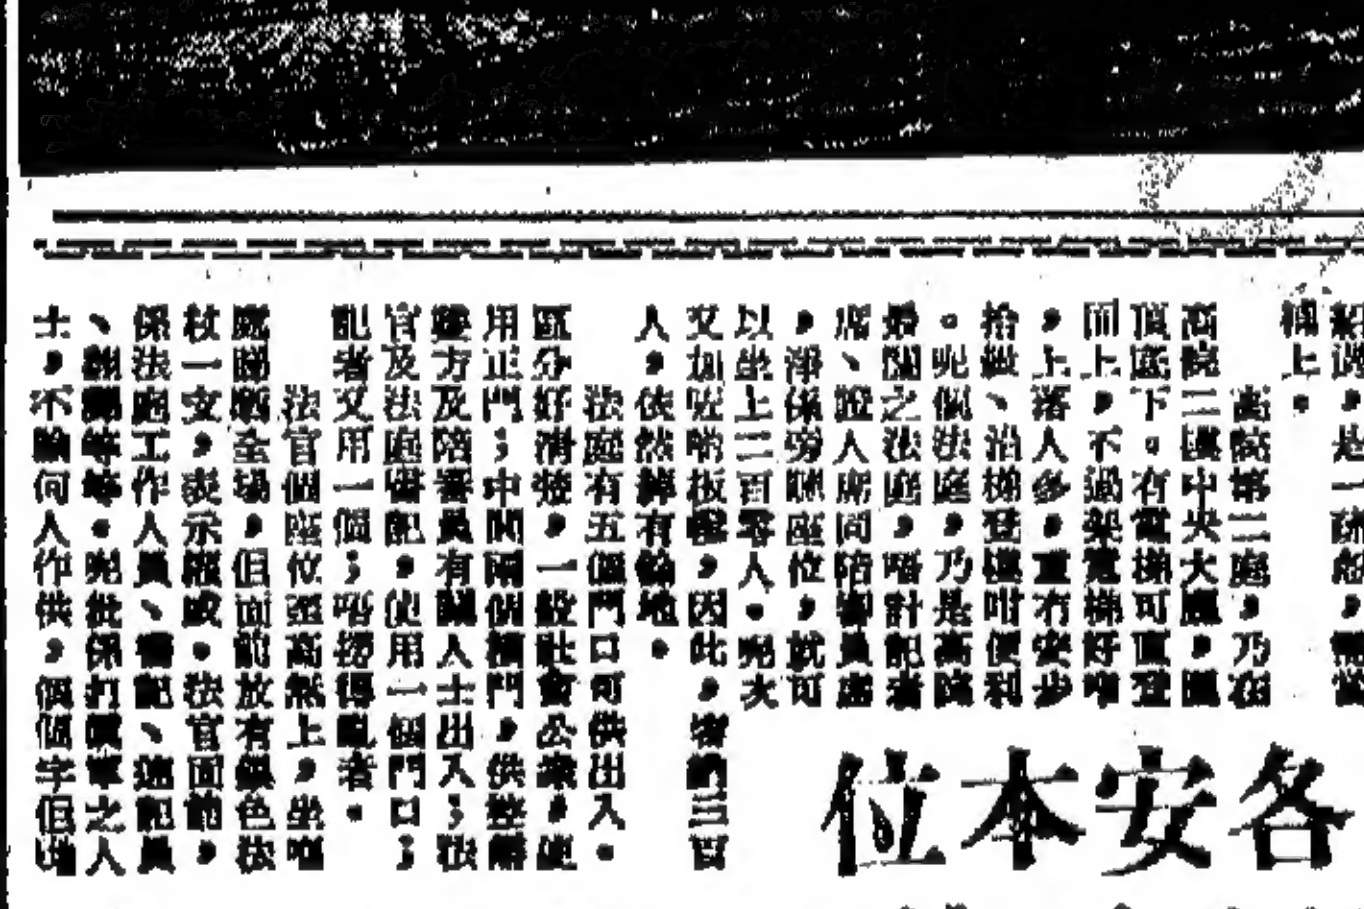 欄上。
高院第三庭，乃在
高院二樓中央大廳，圓
頂底下。有電梯可直登
而上，不過架電梯好
，上落人多，重冇安步
拾級、沿梯登樓咁便利
。呢個法庭，乃是高院
最闊之法庭，唔計記者
席、證人席同陪審員處
，淨係旁聽座位，就可
以坐上二百零人。呢次
又加咗啲板櫈，因此，容納三百
人，依然綽有餘地。
法庭有五個門口可供出入。
區分好清楚，一般社會公衆，使
用正門；中間兩個橫門，供控辯
雙方及陪審員有關人士出入；法
官及法庭書記，使用一個門口；
記者又用一個；唔撈得亂者。
法官個座位至高無上，坐喺
處睇晒全場，但面前放有銀色
杖一支，表示權威。法官面前，
係法庭工作人員、書記、速記員
、翻譯等等。呢批係打嘅單之人
士，不論何人作供，個個字但
各安本位